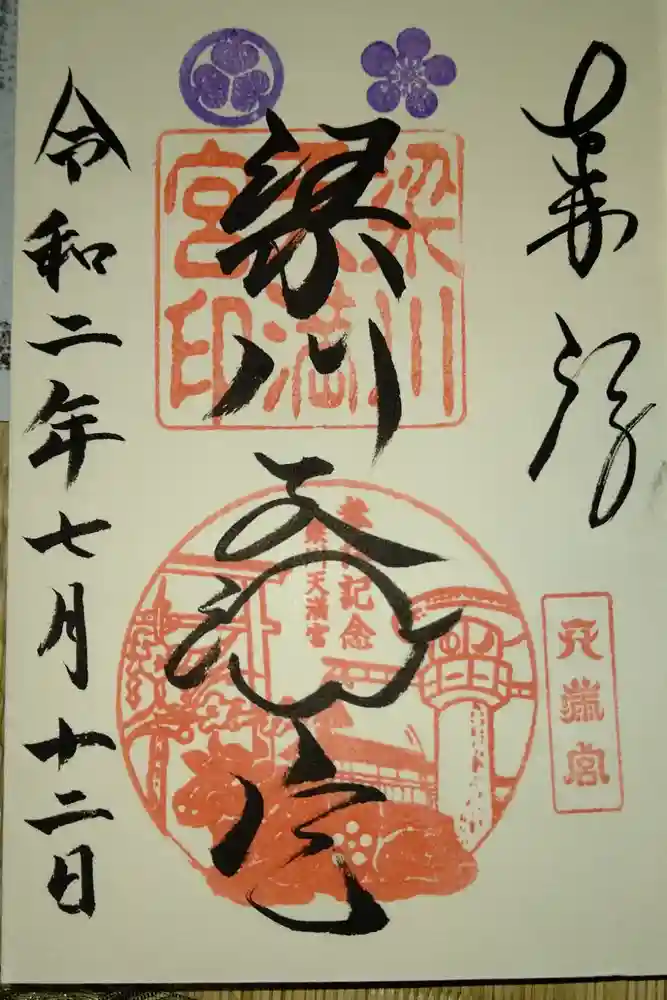 奉拝
天満宮
梁川天満宮
梁川天満宮印
参拝記念
梁川天満宮
令和二年七月十二日